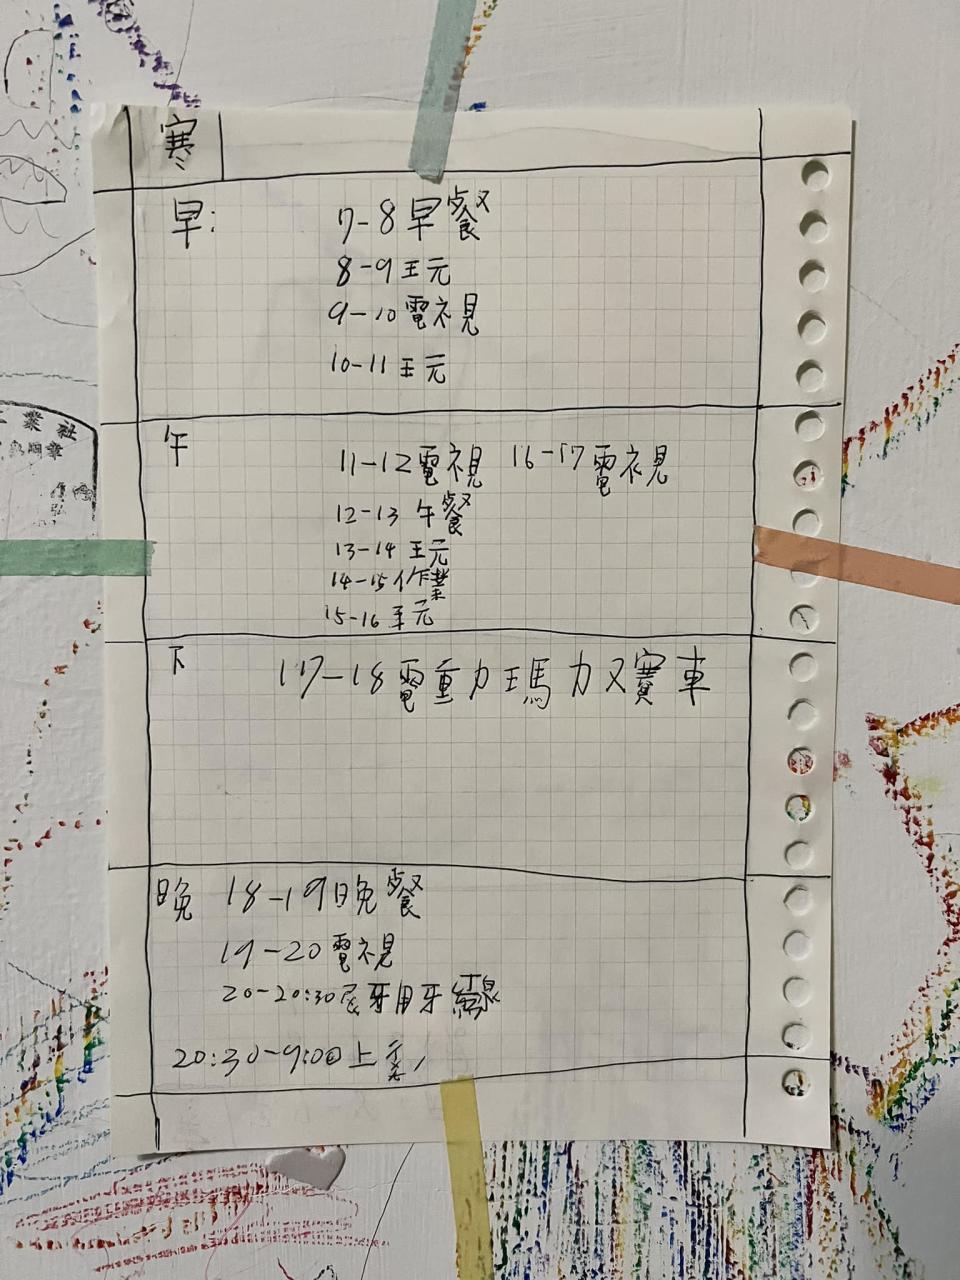 寒
早:
7-8早餐
8-9王元
9-10電視
10-11王元
業社
午
11-12電視 16-17電視
12-13 午餐
13-14 王元
14-15作業
15-16 王元
下
17-18電重力瑪力又賽車
晚 18-19晚餐
19-20電視
20-20:30 牙用牙線
20:30-9:00上